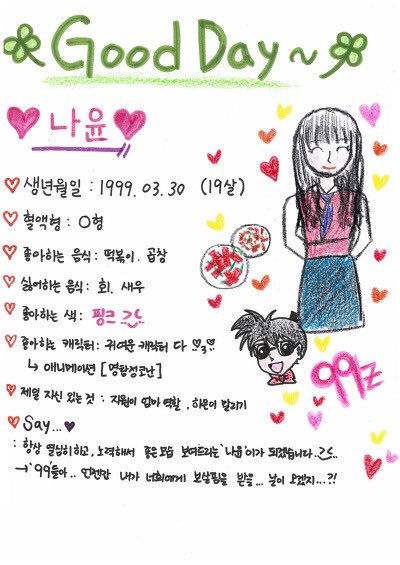 Good Day~
나윤
생년월일 : 1999. 03. 30 (19살)
혈액형 : O형
좋아하는 음식 : 떡볶이. 곱창
싫어하는 음식 : 회. 새우
좋아하는 색 : 핑크
좋아하는 캐릭터 : 귀여운 캐릭터 다
↳ 애니메이션 [명탐정코난]
제일 자신 있는 것 : 지원이 엄마 역할, 하은이 말리기
99z
Say...♥
: 항상 열심히하고, 노력해서 좋은모습 보여드리는 '나윤'이가 되겠습니다.
→ '99'들아.. 언젠간 내가 너희에게 보살핌을 받을... 날이 오겠지...?!